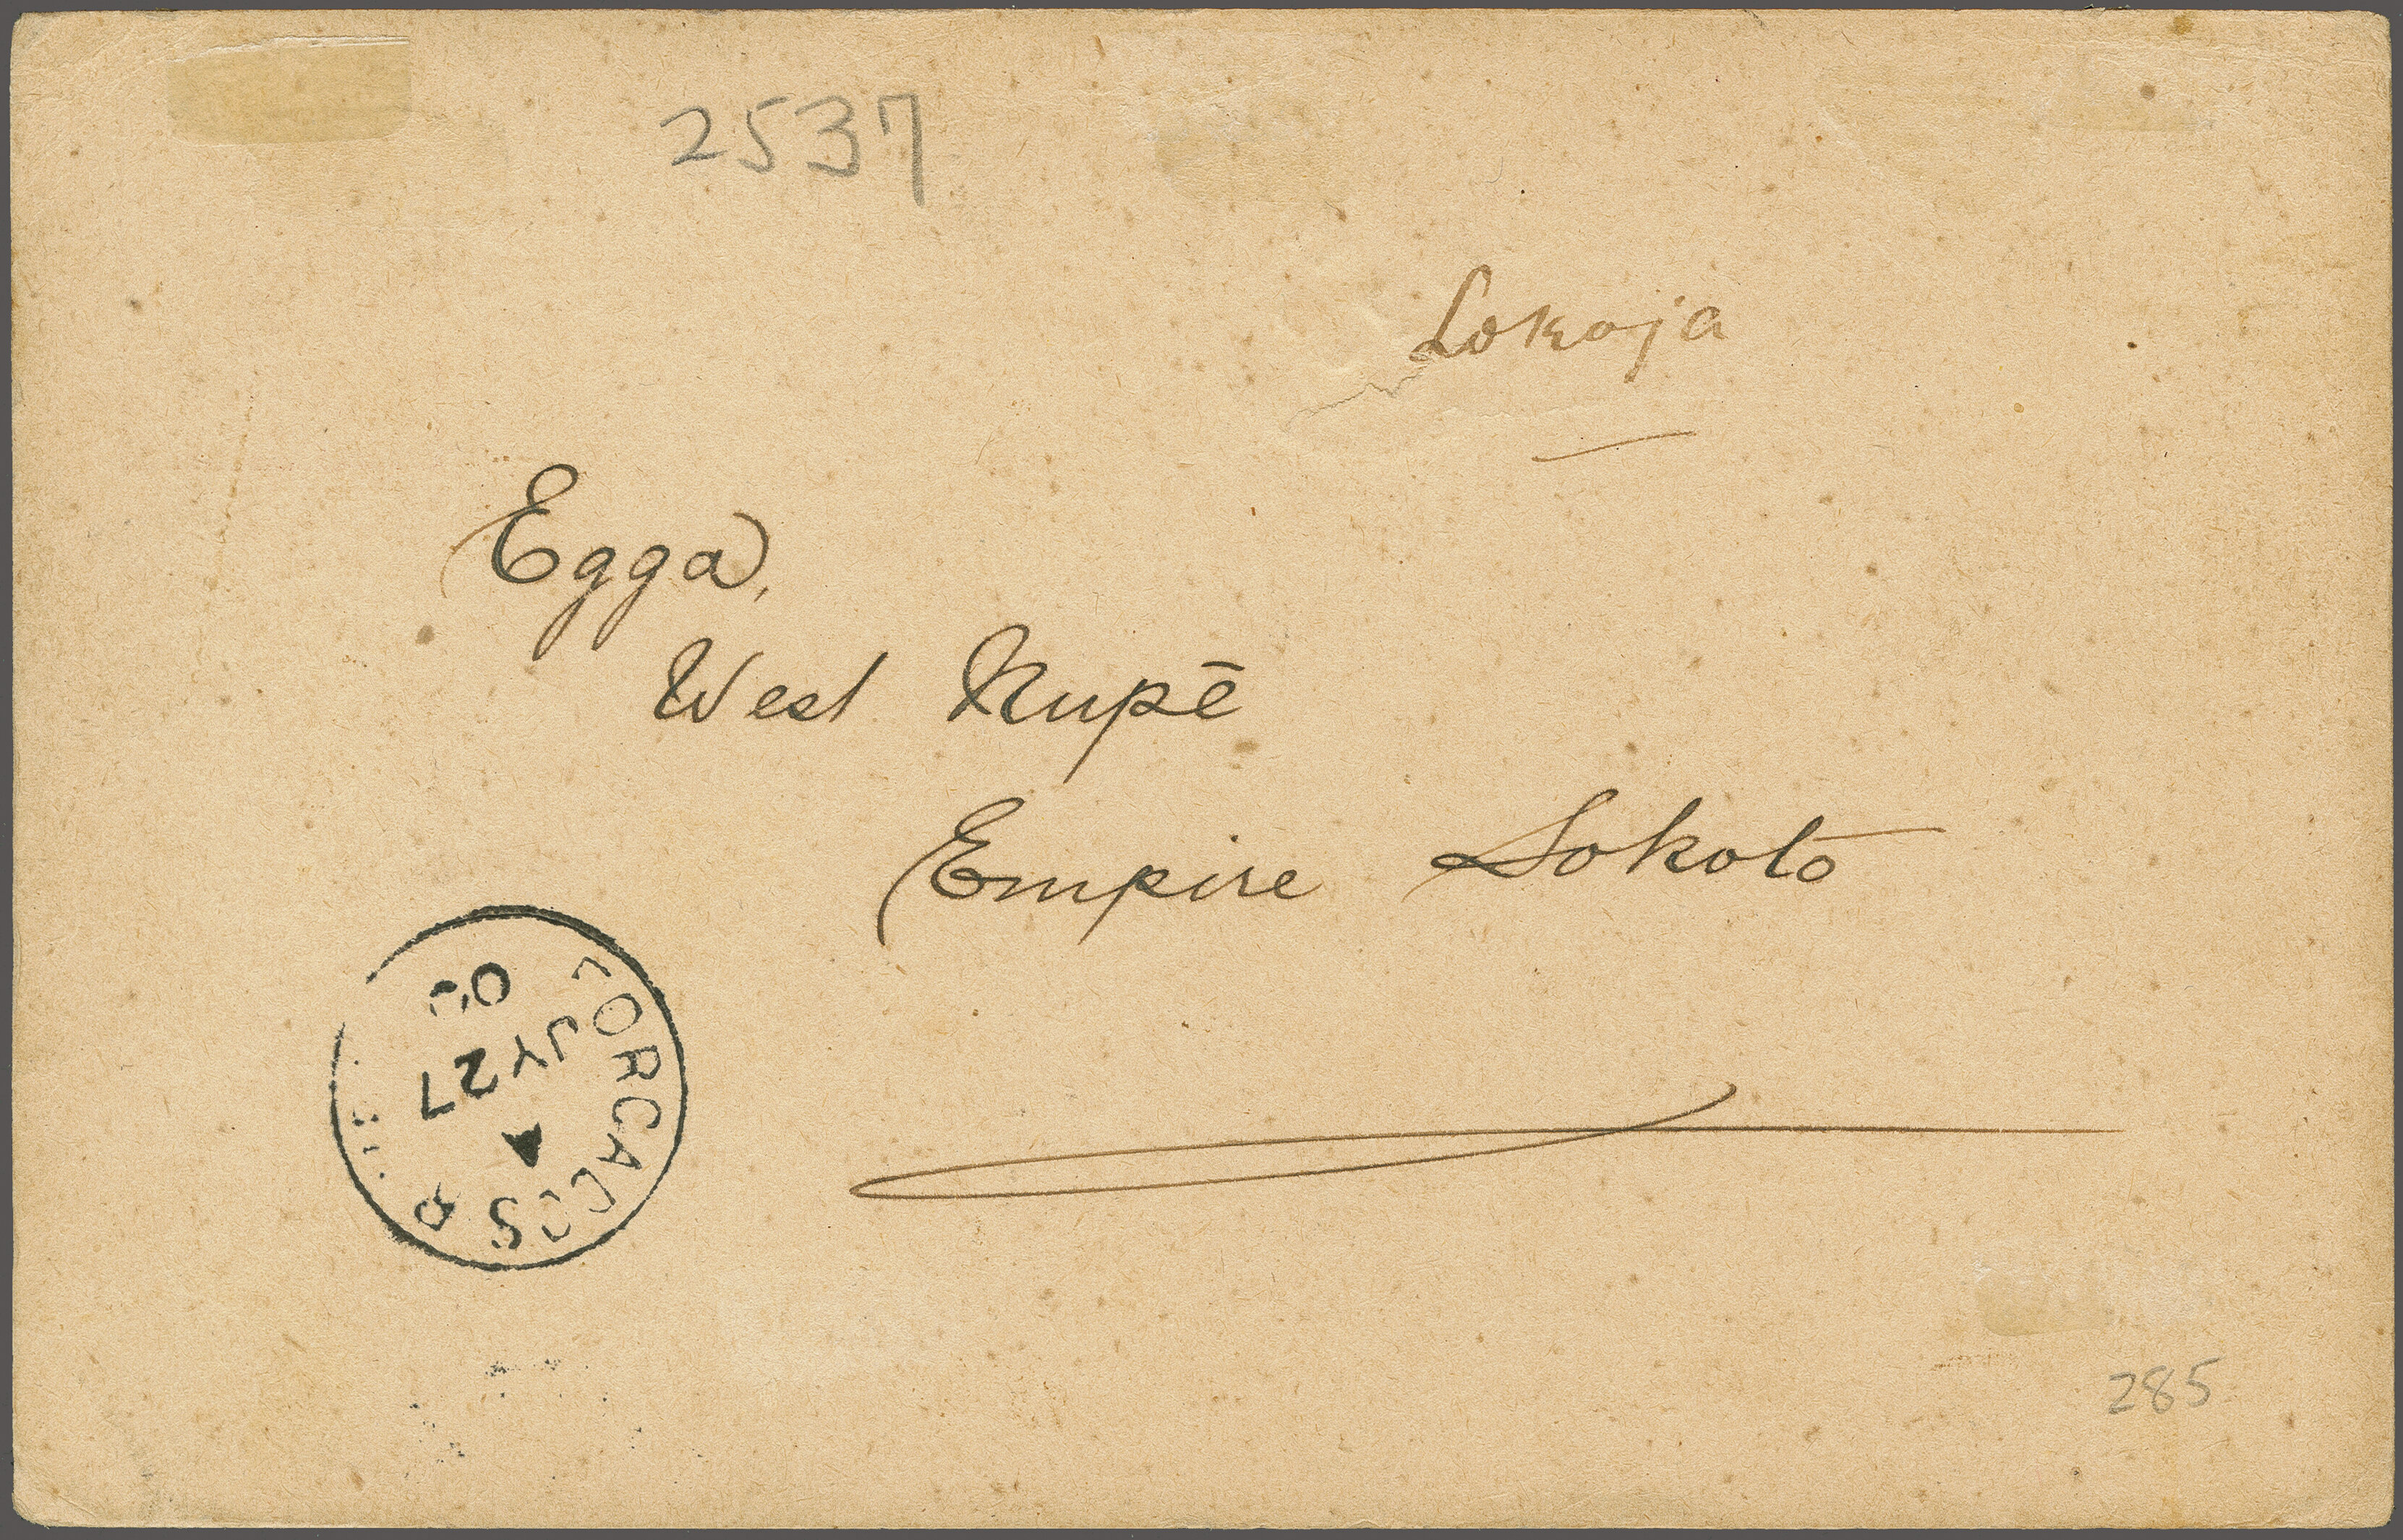 2537
Lokoja
Egga,
West Nupē
Empire Sokoto
FORCADOS
A
JY 27
285